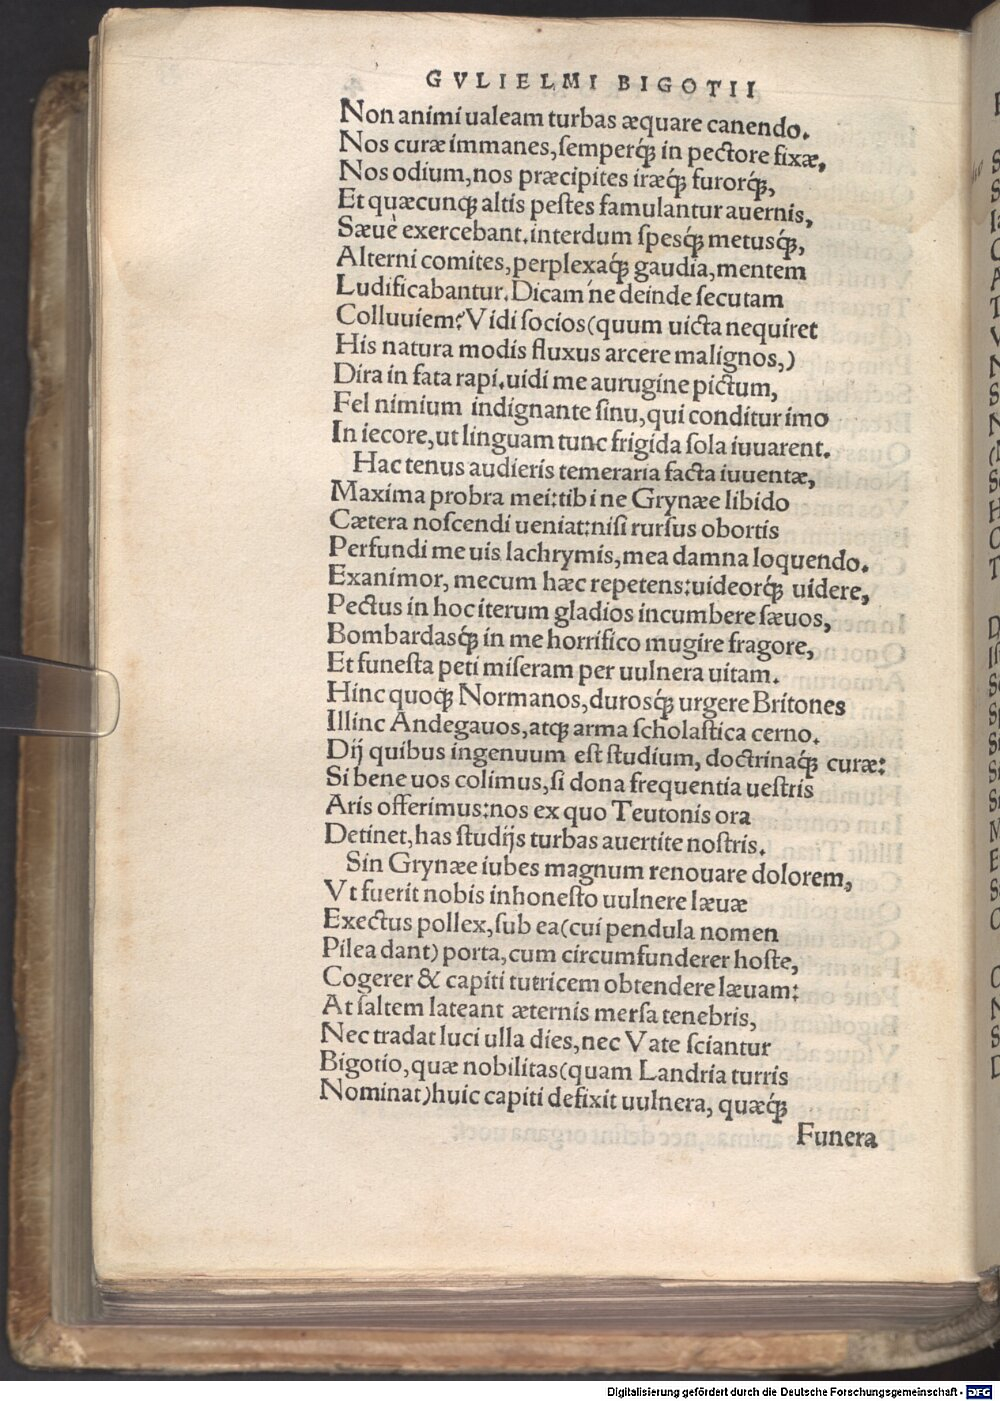 GVLIELMI BIGOTII
Non animi ualeam turbas æquare canendo.
Nos curæ immanes, semperq́; in pectore fixæ,
Nos odium, nos præcipites iræq́; furorq́;,
Et quæcunq; altis pestes famulantur auernis,
Sæuè exercebant. interdum spesq́; metusq́;,
Alterni comites, perplexaq́; gaudia, mentem
Ludificabantur. Dicam'ne deinde secutam
Colluuiem? Vidi socios (quum uicta nequiret
His natura modis fluxus arcere malignos,)
Dira in fata rapi. uidi me aurugine pictum,
Fel nimium indignante sinu, qui conditur imo
In iecore, ut linguam tunc frigida sola iuuarent.
Hac tenus audieris temeraria facta iuuentæ,
Maxima probra mei: tibi ne Grynæe libido
Cætera noscendi ueniat: nisi rursus obortis
Perfundi me uis lachrymis, mea damna loquendo.
Exanimor, mecum hæc repetens: uideorq́; uidere,
Pectus in hoc iterum gladios incumbere sæuos,
Bombardasq́; in me horrifico mugire fragore,
Et funesta peti miseram per uulnera uitam.
Hinc quoq; Normanos, durosq́; urgere Britones
Illinc Andegauos, atq; arma scholastica cerno.
Dij quibus ingenuum est studium, doctrinaq́; curæ:
Si bene uos colimus, si dona frequentia uestris
Aris offerimus: nos ex quo Teutonis ora
Detinet, has studijs turbas auertite nostris.
Sin Grynæe iubes magnum renouare dolorem,
Vt fuerit nobis inhonesto uulnere læuæ
Exectus pollex, sub ea (cui pendula nomen
Pilea dant) porta, cum circumfunderer hoste,
Cogerer & capiti tutricem obtendere læuam:
At saltem lateant æternis mersa tenebris,
Nec tradat luci ulla dies, nec Vate sciantur
Bigotio, quæ nobilitas (quam Landria turris
Nominat) huic capiti defixit uulnera, quæq́;
Funera
Digitalisierung gefördert durch die Deutsche Forschungsgemeinschaft - DFG